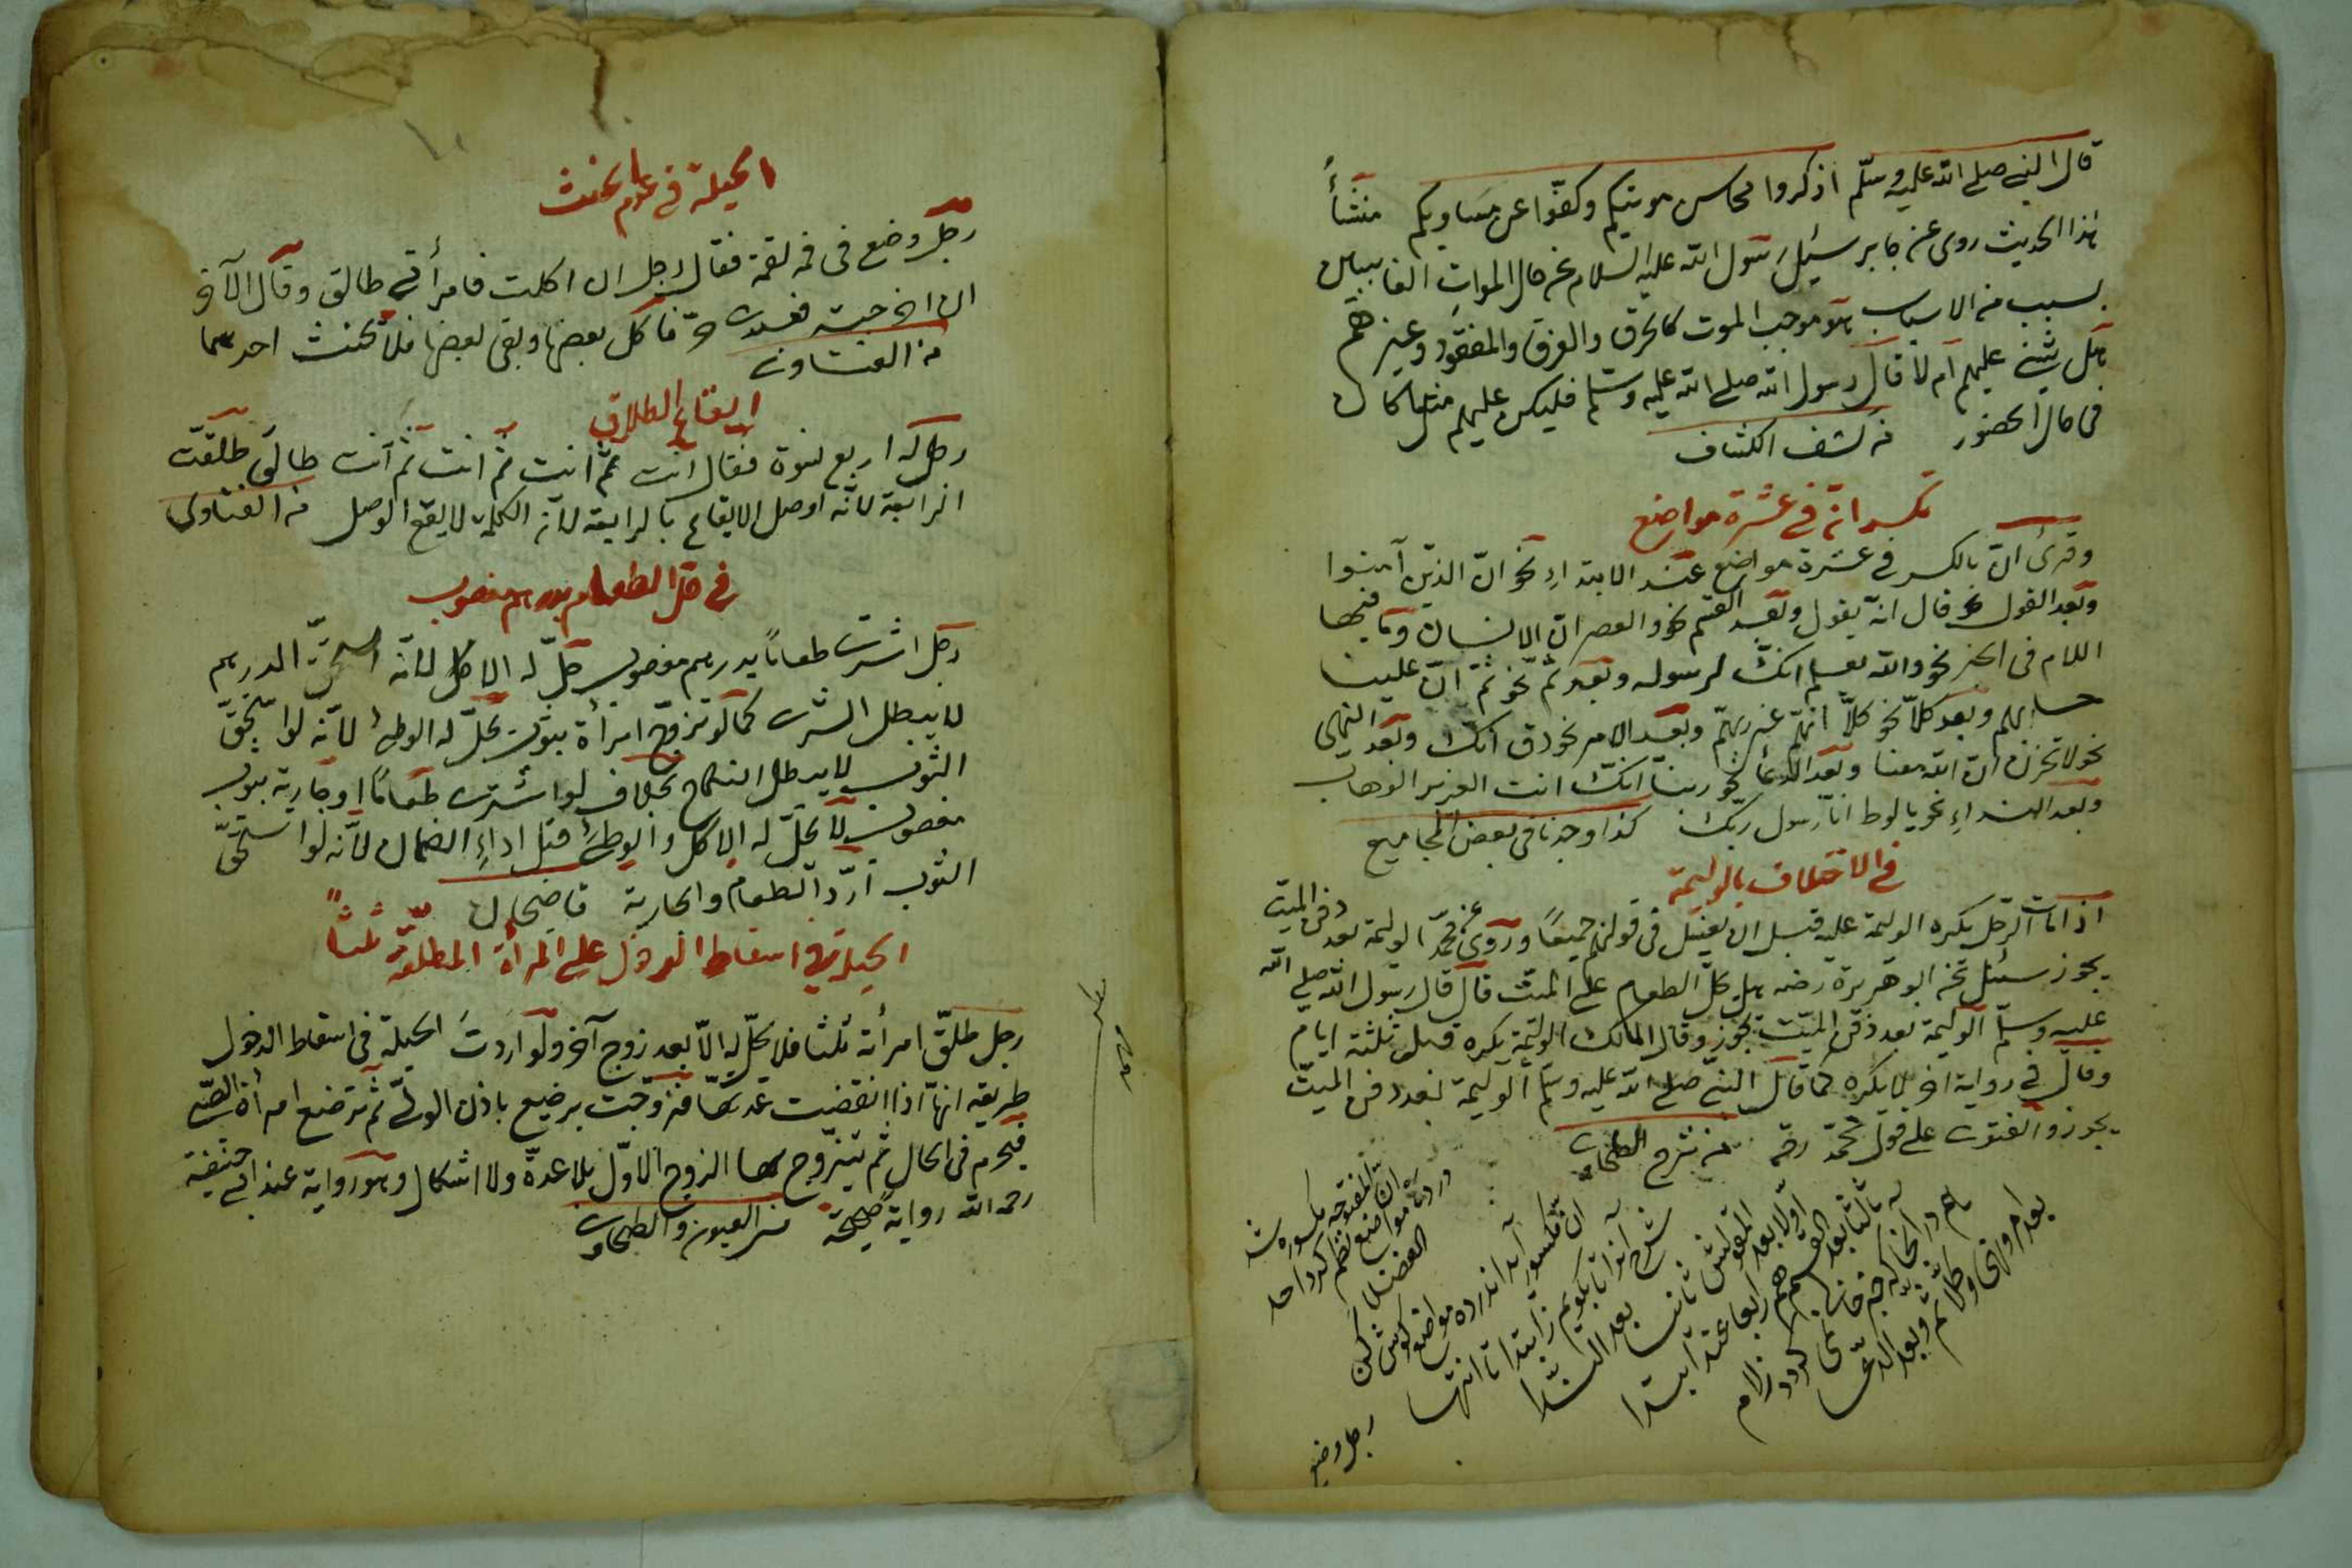 قال النبي صلى الله عليه وسلم اذكروا محاسن موتيكم وكفوا عن مساويكم منشأ
هذا الحديث روى عن جابر سئل رسول الله عليه السلام عن حال الموات الغائبين
بسبب من الاسباب هو موجب الموت كالحرق والغرق والمفقود وغيرهم
هل يثنى عليهم ام لا قال رسول الله صلى الله عليه وسلم فليكن عليهم مثل ما كان
فى حال الحضور من كشف الكشاف
تكسر ان فى عشرة مواضع
وقرئ ان بالكسر فى عشرة مواضع عند الابتداء نحو ان الذين آمنوا
وبعد القول نحو قال انه يقول وبعد القسم نحو والعصر ان الانسان وما فيها
اللام فى الخبر نحو والله يعلم انك لرسوله وبعد ثم نحو ثم ان علينا
حسابهم وبعد كلا نحو كلا انهم عن ربهم وبعد الامر نحو ذق انك وبعد النهى
نحو لا تحزن ان الله معنا وبعد الدعاء نحو ربنا انك انت العزيز الوهاب
وبعد النداء نحو يا لوط انا رسول ربك كذا وجدنا فى بعض المجاميع
فى الاختلاف بالوليمة
اذا مات الرجل يكره الوليمة عليه قبل ان يغسل فى قولهم جميعا وروى عن محمد الوليمة بعد دفن الميت
يجوز سئل عن ابو هريرة رضه هل يحل الطعام على الميت قال قال رسول الله صلى الله
عليه وسلم الوليمة بعد دفن الميت يجوز وقال المالك الوليمة يكره قبل ثلثة ايام
وقال فى رواية اخر لا يكره كما قال النبى صلى الله عليه وسلم الوليمة بعد دفن الميت
يجوز والفتوى على قول محمد رحمه من شرح الطحاوى
در ده مواضع ان المفتوحه مكسوره شد
نظم كرد احد الفضلا
ان مكسور آمد اندر ده مواضع گوش كن
شرح آنرا تا بگويم ز ابتدا تا انتها
اولا بعد القول ثانيا بعد الندا
ثالثا بعد القسم هم رابعا عند ابتدا
هم در آنجا كه خبر خالى نمى گردد ز لام
بعد امر ونهى وكلا ثم وبعد الدعا
رجل وضع
الحيلة فى عدم الحنث
رجل وضع فى فمه لقمة فقال رجل ان اكلت فامرأتى طالق وقال الآخر
ان اخرجته فعبدى حر فاكل بعضها وبقى بعضها فلا يحنث احدهما
من الفتاوى
ايقاع الطلاق
رجل له اربع نسوة فقال انت ثم انت ثم انت ثم انت طالق طلقت
الرابعة لانه اوصل الايقاع بالرابعة لان الكلمة لا يقع الوصل من الفتاوى
فى حل الطعام بدرهم مغصوب
رجل اشترى طعاما بدرهم مغصوب حل له الاكل لانه استحق الدرهم
لا يبطل الشرى كما لو تزوج امرأة بثوب يحل له الوطئ لانه لو استحق
الثوب لا يبطل النكاح بخلاف لو اشترى طعاما او جارية بثوب
مغصوب لا يحل له الاكل والوطئ قبل اداء الضمان لانه لو استحق
الثوب ردّ الطعام والجارية قاضيخان
الحيلة فى اسقاط الدخول على المرأة المطلقة ثلثا
رجل طلق امرأته ثلثا فلا يحل له الا بعد زوج آخر ولو اردت الحيلة فى اسقاط الدخول
طريقه انها اذا انقضت عدتها فزوجت برضيع باذن الولى ثم ترضع امرأة الصبى
فيحرم فى الحال ثم يتزوج بها الزوج الاول بلا عدة ولا اشكال وهو رواية عند ابى حنيفة
رحمه الله رواية صحيحة من العيون والطحاوى